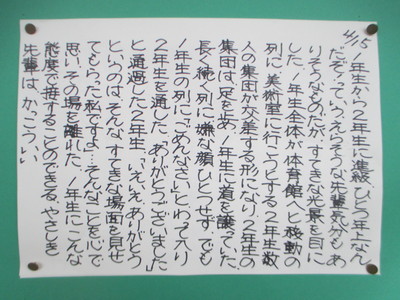 4/15
1年生から2年生に進級、ひとつ年上なん
だぞ!っていう、えらそうな先輩気分もあ
りそうなものだが、すてきな光景を目に
した。1年生全体が体育館へと移動の
列に美術室に行こうとする2年生数
人の集団が交差する形になり、2年生の
集団は、足を止め1年生に道を譲っていた。
長く続く列に嫌な顔ひとつせず。でも
1年生の列に「ごめんなさい」とわって入り
2年生を通した。「ありがとうございました」
と通過した2年生。「いえいえ、ありがとう
というのは、そんなすてきな場面を見せ
てもらった私ですよ…」そんなことを心で
思い、その場を離れた。1年生にこんな
態度で接することのできる、やさしき
先輩は、かっこういい